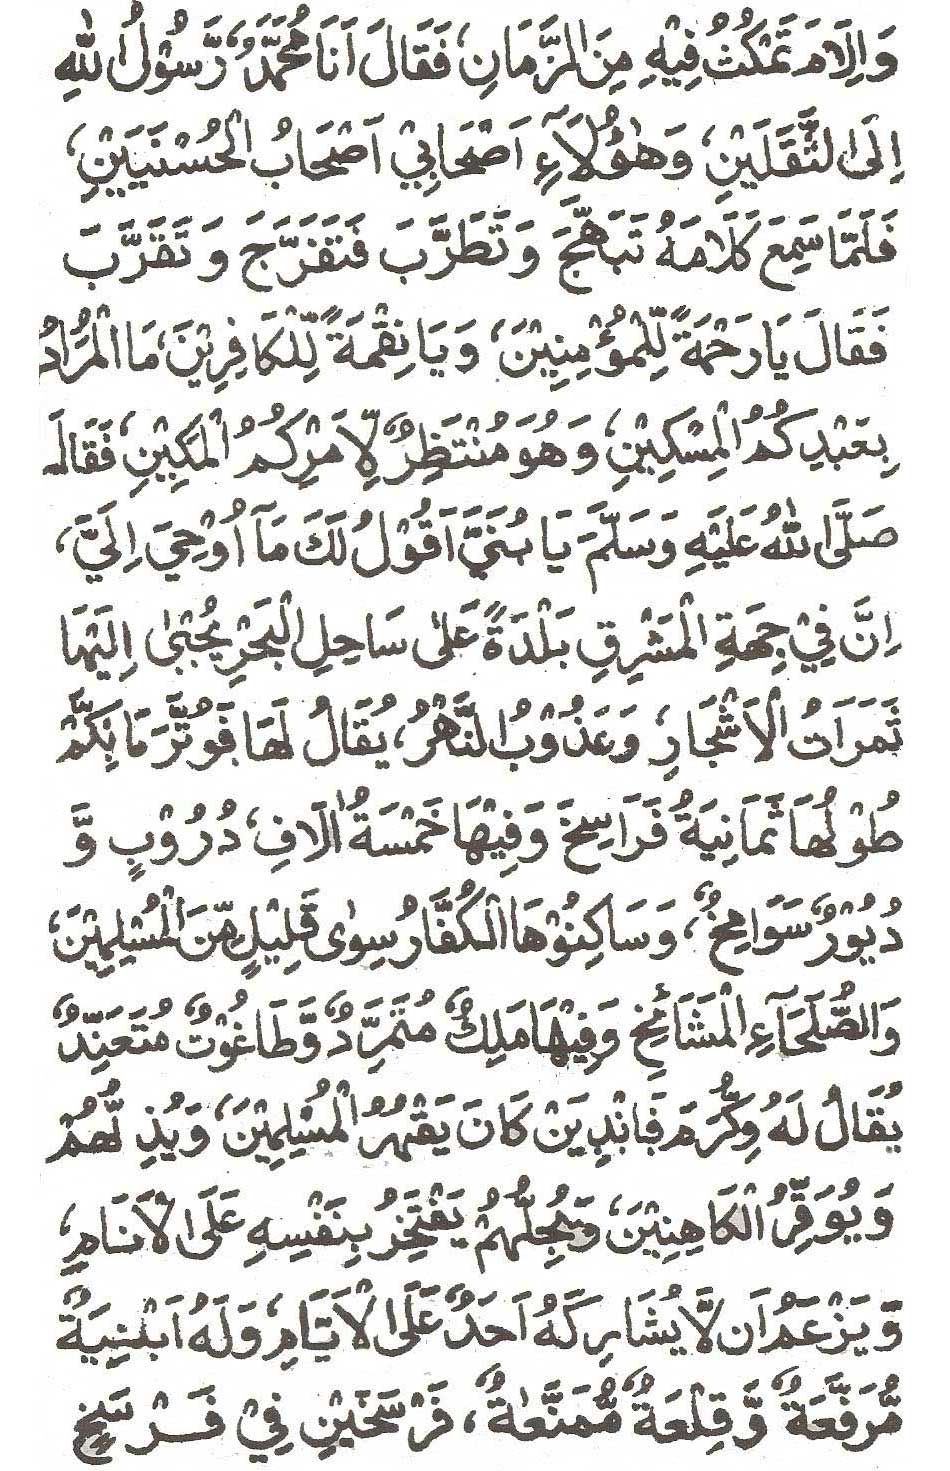 وَاِلَامَ تَمْكُثُ فِيْهِ مِنَ الزَّمَانِ، فَقَالَ اَنَا مُحَمَّدٌ، رَّسُوْلُ اللهِ
اِلَى الثَّقَلَيْنِ، وَهٰؤُلَآءِ اَصْحَابِيْ اَصْحَابُ الْحُسْنَيَيْنِ،
فَلَمَّا سَمِعَ كَلَامَهُ تَبَهَّجَ وَتَطَرَّبَ فَتَفَرَّجَ وَتَقَرَّبَ
فَقَالَ يَارَحْمَةً لِّلْمُؤْمِنِيْنَ، وَيَا نِقْمَةً لِّلْكَافِرِيْنَ، مَا الْمُرَادُ
بِعَبْدِكُمُ الْمِسْكِيْنِ، وَهُوَ مُنْتَظِرٌ لِّاَمْرِكُمُ الْمَكِيْنِ، فَقَالَ
صَلَّى اللهُ عَلَيْهِ وَسَلَّمَ يَا بُنَيَّ اَقُوْلُ لَكَ مَآ اُوْحِيَ اِلَيَّ،
اِنَّ فِيْ جِهَةِ الْمَشْرِقِ بَلْدَةً عَلٰى سَاحِلِ الْبَحْرِ يُجْبٰى اِلَيْهَا
ثَمَرَاتُ الْاَشْجَارِ، وَعَذُوْبُ النَّهْرُ، يُقَالُ لَهَا فَوُتَّرَمَانِكَّمْ
طُوْلُهَا ثَمَانِيَةُ فَرَاسِخَ وَفِيْهَا خَمْسَةُ اٰلَافِ، دُرُوْبٍ وَّ
دُيُوْرٌ سَوَامِخُ، وَسَاكِنُوْهَا الْكُفَّارُ سِوٰى قَلِيْلٍ مِّنَ الْمُسْلِمِيْنَ،
وَالصُّلَحَآءِ الْمَشَائِخِ وَفِيْهَا مَلِكٌ مُتَمَرِّدٌ، وَّطَاغُوْتٌ مُتَعَنِّدٌ
يُقَالُ لَهُ وِكْرُمَ فَانْدِيَنْ كَانَ يَقْهَرُ الْمُسْلِمِيْنَ، وَيُذِلُّهُمْ
وَيُوَقِّرُ الْكَاهِنِيْنَ، وَيُجِلُّهُمْ يَفْتَخِرُ بِنَفْسِهِ عَلَى الْاَنَامِ،
وَّيَزْعَمُ اَن لَّا يُشَارِكَهُ اَحَدٌ عَلَى الْاَيَّامِ، وَلَهُ اَبْنِيَةٌ
مُّرَفَّعَةٌ وَّقِلْعَةٌ مُّمَنَّعَةٌ، فَرْسَخَيْنِ فِيْ فَرْسَخٍ